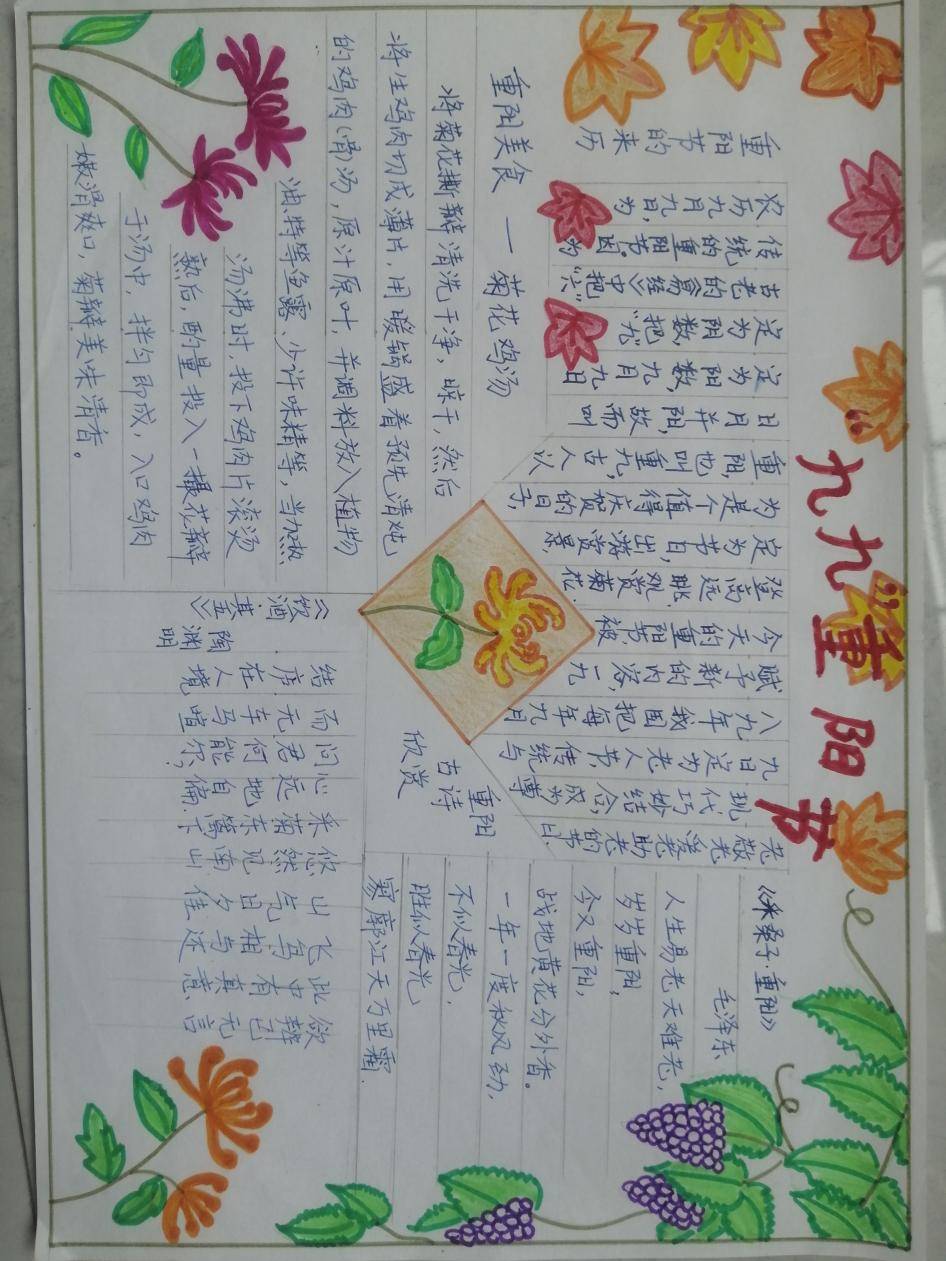 “九九”重阳节
重阳节的来历
农历九月九日,为
传统的重阳节。因为
古老的《易经》中把“六”
定为阴数,把“九”
定为阳数,九月九日
日月并阳,故而叫
重阳,也叫重九,古人认
为是个值得庆贺的日子,
定为节日,出游赏景
登高远眺、观赏菊花
今天的重阳节,被
赋予新的内容,一九
八九年,我国把每年九月
九日定为老人节,传统与
现代巧妙结合,成为尊
老敬老爱老助老的节日.
重阳美食 — 菊花鸡汤
将菊花撕瓣清洗干净,晾干,然后
将生鸡肉切成薄片,用暖锅盛着预先清炖
的鸡肉骨汤,原汁原叶,并调料放入植物
油、特等鱼露、少许味精等,当加热
汤沸时,投下鸡肉片滚烫
熟后,酌量投入一撮花瓣
于汤中,拌匀即成,入口鸡肉
嫩滑爽口,菊瓣美味清香。
重阳
古诗
欣赏
《采桑子·重阳》
毛泽东
人生易老天难老,
岁岁重阳,
今又重阳,
战地黄花分外香。
一年一度秋风劲,
不似春光,
胜似春光
寥廓江天万里霜.
《饮酒 其五》
陶渊明
结庐在人境
而无车马喧
问君何能尔,
心远地自偏,
采菊东篱下
悠然见南山
山气日夕佳
飞鸟相与还
此中有真意
欲辨已无言